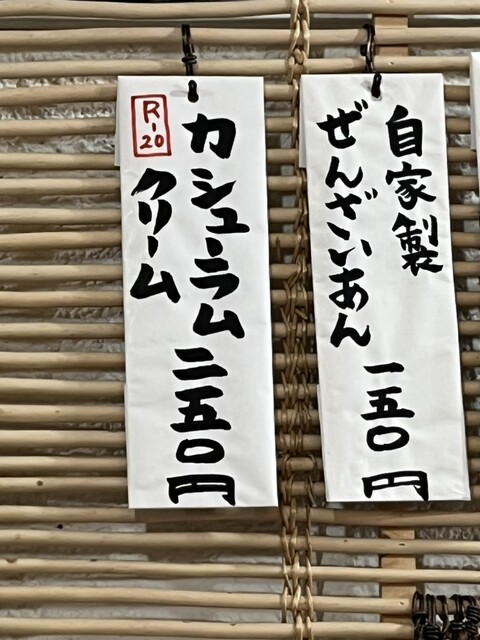 自家製
ぜんざいあん
一五〇円
R-20
カシューラム
クリーム
二五〇円